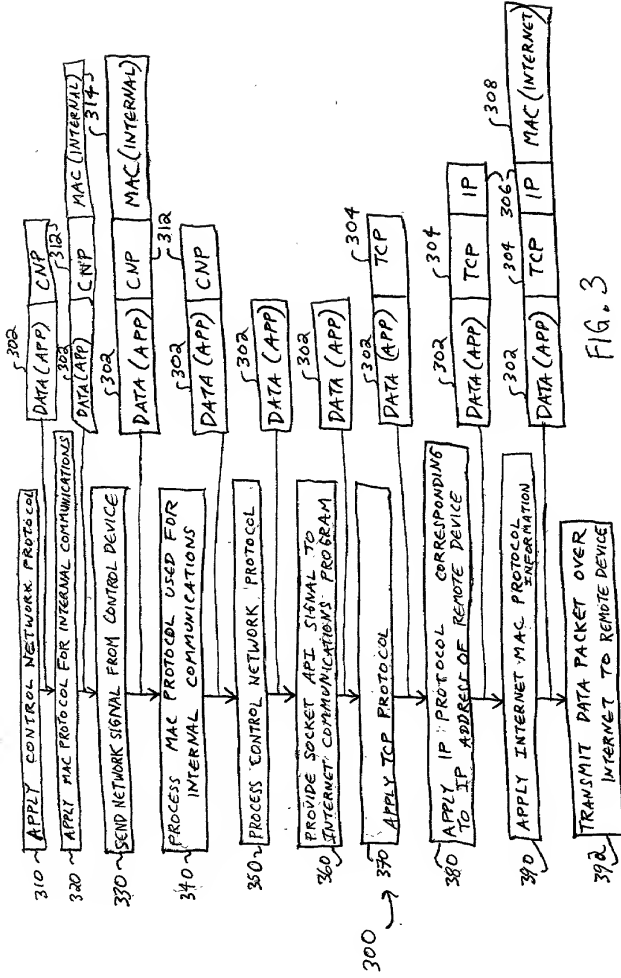 310 APPLY CONTROL NETWORK PROTOCOL
302
DATA (APP) CNP
320 APPLY MAC PROTOCOL FOR INTERNAL COMMUNICATIONS
302 312 314
DATA (APP) CNP MAC (INTERNAL)
330 SEND NETWORK SIGNAL FROM CONTROL DEVICE
302
DATA (APP) CNP MAC (INTERNAL)
312
340 PROCESS MAC PROTOCOL USED FOR
INTERNAL COMMUNICATIONS
302
DATA (APP) CNP
350 PROCESS CONTROL NETWORK PROTOCOL
302
DATA (APP)
360 PROVIDE SOCKET API SIGNAL TO
INTERNET COMMUNICATIONS PROGRAM
302
DATA (APP)
300
370 APPLY TCP PROTOCOL
302 304
DATA (APP) TCP
380 APPLY IP PROTOCOL CORRESPONDING
TO IP ADDRESS OF REMOTE DEVICE
302 304
DATA (APP) TCP IP
390 APPLY INTERNET MAC PROTOCOL
INFORMATION
302 304 306 308
DATA (APP) TCP IP MAC (INTERNET)
392 TRANSMIT DATA PACKET OVER
INTERNET TO REMOTE DEVICE
FIG. 3